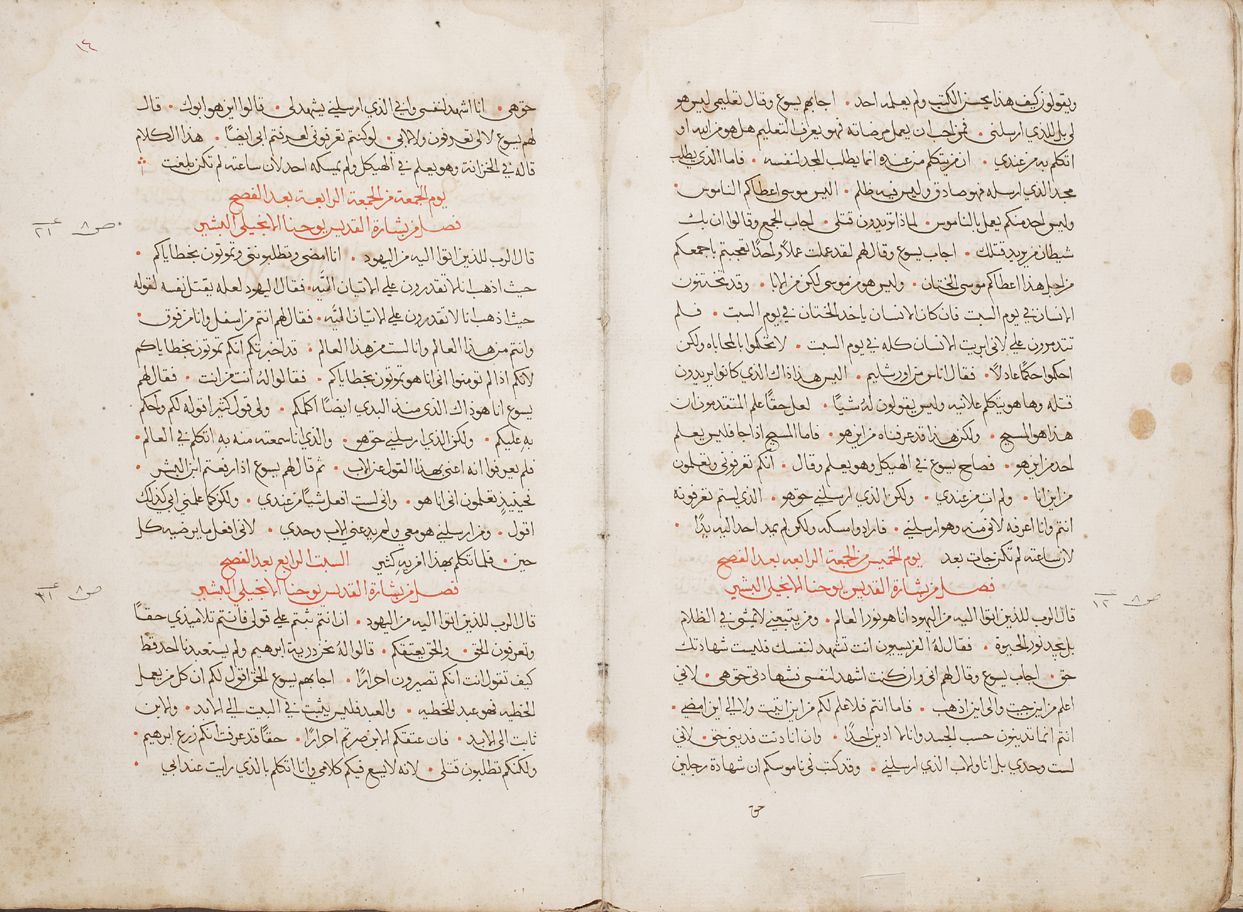 ويقولون كيف هذا يحسن الكتب ولم يعلمه احد • اجابهم يسوع وقال تعليمي ليس هو
لي بل للذي ارسلني • فمن احب ان يعمل مرضاته فهو يعرف التعليم هل هو من الله او
اتكلم به من عندي • ان من يتكلم من عنده انما يطلب المجد لنفسه • فاما الذي يطلب
مجد الذي ارسله فهو صادق وليس فيه ظلم • اليس موسى اعطاكم الناموس •
وليس احد منكم يعمل بالناموس • لماذا تريدون قتلي • اجاب الجمع وقالوا ان بك
شيطان من يريد قتلك • اجاب يسوع وقال لهم لقد عملت عملاً واحدًا تعجبتم باجمعكم
من اجل هذا اعطاكم موسى الختان • وليس هو من موسى لكن من الابا • وقد تختنون
الانسان في يوم السبت فان كان الانسان ياخد الختان في يوم السبت • فلم
تتدمرون علي لاني ابريت الانسان كله في يوم السبت • لا تحكموا بالمحاباه ولكن
احكموا حكمًا عادلاً • فقال اناس من اورشليم • اليس هذا ذاك الذي كانوا يريدون
قتله وها هو يتكلم علانيه وليس يقولون له شيًا • لعل حقًا علم المتقدمون ان
هذا هو المسيح • ولكن هذا قد عرفناه من اين هو • فاما المسيح اذا جا فليس يعلم
احد من اين هو • فصاح يسوع في الهيكل وهو يعلم وقال • انكم تعرفوني وتعلمون
من اين انا • ولم ات من عندي • ولكن الذي ارسلني حق هو • الذي لستم تعرفونه
انتم وانا اعرفه لاني منه وهو ارسلني • فارادوا مسكه ولكن لم يمد احد اليه يدًا •
لان ساعته لم تكن جات بعد يوم الخميس من الجمعة الرابعه بعد الفصح
فصل من بشارة القديس يوحنا الانجيلي البشير
ص ٨ عـ ١٢
قال الرب للذين اتوا اليه من اليهود انا هو نور العالم • ومن يتبعني لا يمشي في الظلام
بل يجد نور الحيوة • فقال له الفريسيون انت تشهد لنفسك فليست شهادتك
حق • اجاب يسوع وقال لهم اني وان كنت اشهد لنفسي فشهادتي حق هي • لاني
اعلم من اين جيت والى اين اذهب • فاما انتم فلا علم لكم من اين اتيت ولا الى اين امضي •
انتم انما تدينون حسب الجسد وانا لا ادين احدًا • وان انا دنت فديني حق • لاني
لست وحدي بل انا والاب الذي ارسلني • وقد كتب في ناموسكم ان شهادة رجلين
حق
١٤
حق هي • انا اشهد لنفسي وابي الذي ارسلني يشهد لي • قالوا اين هو ابوك • قال
لهم يسوع لا لي تعرفون ولا لابي • لو كنتم تعرفوني لعرفتم ابي ايضًا • هذا الكلام
قاله في الخزانة وهو يعلم في الهيكل ولم يمسكه احد لان ساعته لم تكن بلغت
يوم الجمعة من الجمعة الرابعة بعد الفصح
فصل من بشارة القديس يوحنا الانجيلي البشير
ص ٨ عـ ٢١
قال الرب للذين اتوا اليه من اليهود • انا امضي وتطلبونني وتموتون بخطاياكم •
حيث اذهب انا لا تقدرون على الاتيان اليَّه • فقال اليهود لعله يقتل نفسه لقوله
حيث اذهب انا لا تقدرون على الاتيان اليَّه • فقال لهم انتم من اسفل وانا من فوق •
وانتم من هذا العالم وانا لست من هذا العالم • قد اخبرتكم انكم تموتون بخطاياكم
لانكم اذا لم تومنوا اني انا هو تموتون بخطاياكم • فقالوا له انت من انت • فقال لهم
يسوع انا هو ذاك الذي منذ البدي ايضًا اكلمكم • ولي قول كثير اقوله لكم واحكم
به عليكم • ولكن الذي ارسلني حق هو • والذي انا سمعته منه به اتكلم في العالم •
فلم يعرفوا انه اعنى بهذا القول عن الاب • ثم قال لهم يسوع اذا رفعتم ابن البشر •
فحينيذٍ تعلمون اني انا هو • واني لست افعل شيًا من عندي • ولكن كما علمني ابي كذلك
اقول • ومن ارسلني هو معي ولم يدعني الاب وحدي • لاني افعل ما يرضيه كل
حين • فلما تكلم بهذا امن به كثير السبت الرابع بعد الفصح
فصل من بشارة القديس يوحنا الانجيلي البشير
ص ٨ عـ ٣١
قال الرب للذين اتوا اليه من اليهود • ان انتم ثبتم على قولي فانتم تلاميذي حقًا
وتعرفون الحق • والحق يعتقكم • قالوا له نحن ذرية ابرهيم ولم يستعبدنا احد قط
كيف تقول انت انكم تصيرون احرارًا • اجابهم يسوع الحق اقول لكم ان كل من يعمل
الخطيه فهو عبد للخطيه • والعبد فليس يثبت في البيت الى الابد • والابن
ثابت الى الابد • فان عتقكم الابن صرتم احرارًا • حقًا قد عرفت انكم زرع ابرهيم •
ولكنكم تطلبون قتلي • لانه لا يسع فيكم كلامي وانا اتكلم بالذي رايت عند ابي •